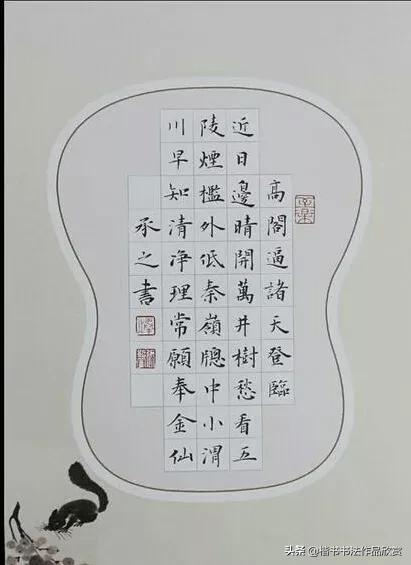 高閣逼諸天登臨
近日邊晴開萬井樹愁看五
陵煙檻外低秦嶺牎中小渭
川早知清净理常願奉金仙
承之書
头条 @楷书书法作品欣赏